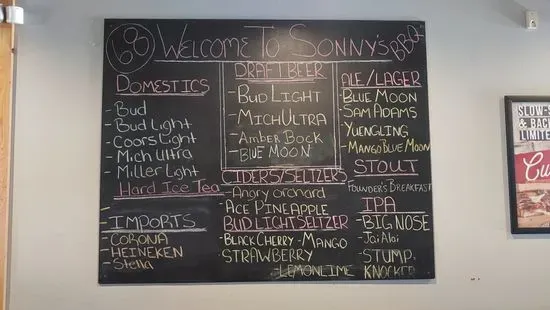 68
WELCOME TO SONNY'S BBQ
DOMESTICS
- Bud
- Bud Light
- Coors Light
- Mich Ultra
- Miller Light
Hard Ice Tea
IMPORTS
- CORONA
- HEINEKEN
- Stella
DRAFT BEER
- BUD LIGHT
- MICH ULTRA
- Amber Bock
- BLUE MOON
CIDERS/SELTZERS
- Angry orchard
- ACE PINEAPPLE
BUD LIGHT SELTZER
- BLACK CHERRY - MANGO
- STRAWBERRY
- LEMON LIME
ALE/LAGER
- BLUE MOON
- SAM ADAMS
- YUENGLING
- MANGO BLUE MOON
STOUT
- FOUNDER'S BREAKFAST
IPA
- BIG NOSE
- Jai Alai
- STUMP
KNOCKER
SLOW-S
& BAC
LIMITE
Cu